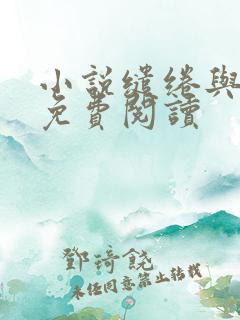 小說繾綣與
免費閱讀
鄧琦饒
未经同意禁止转载